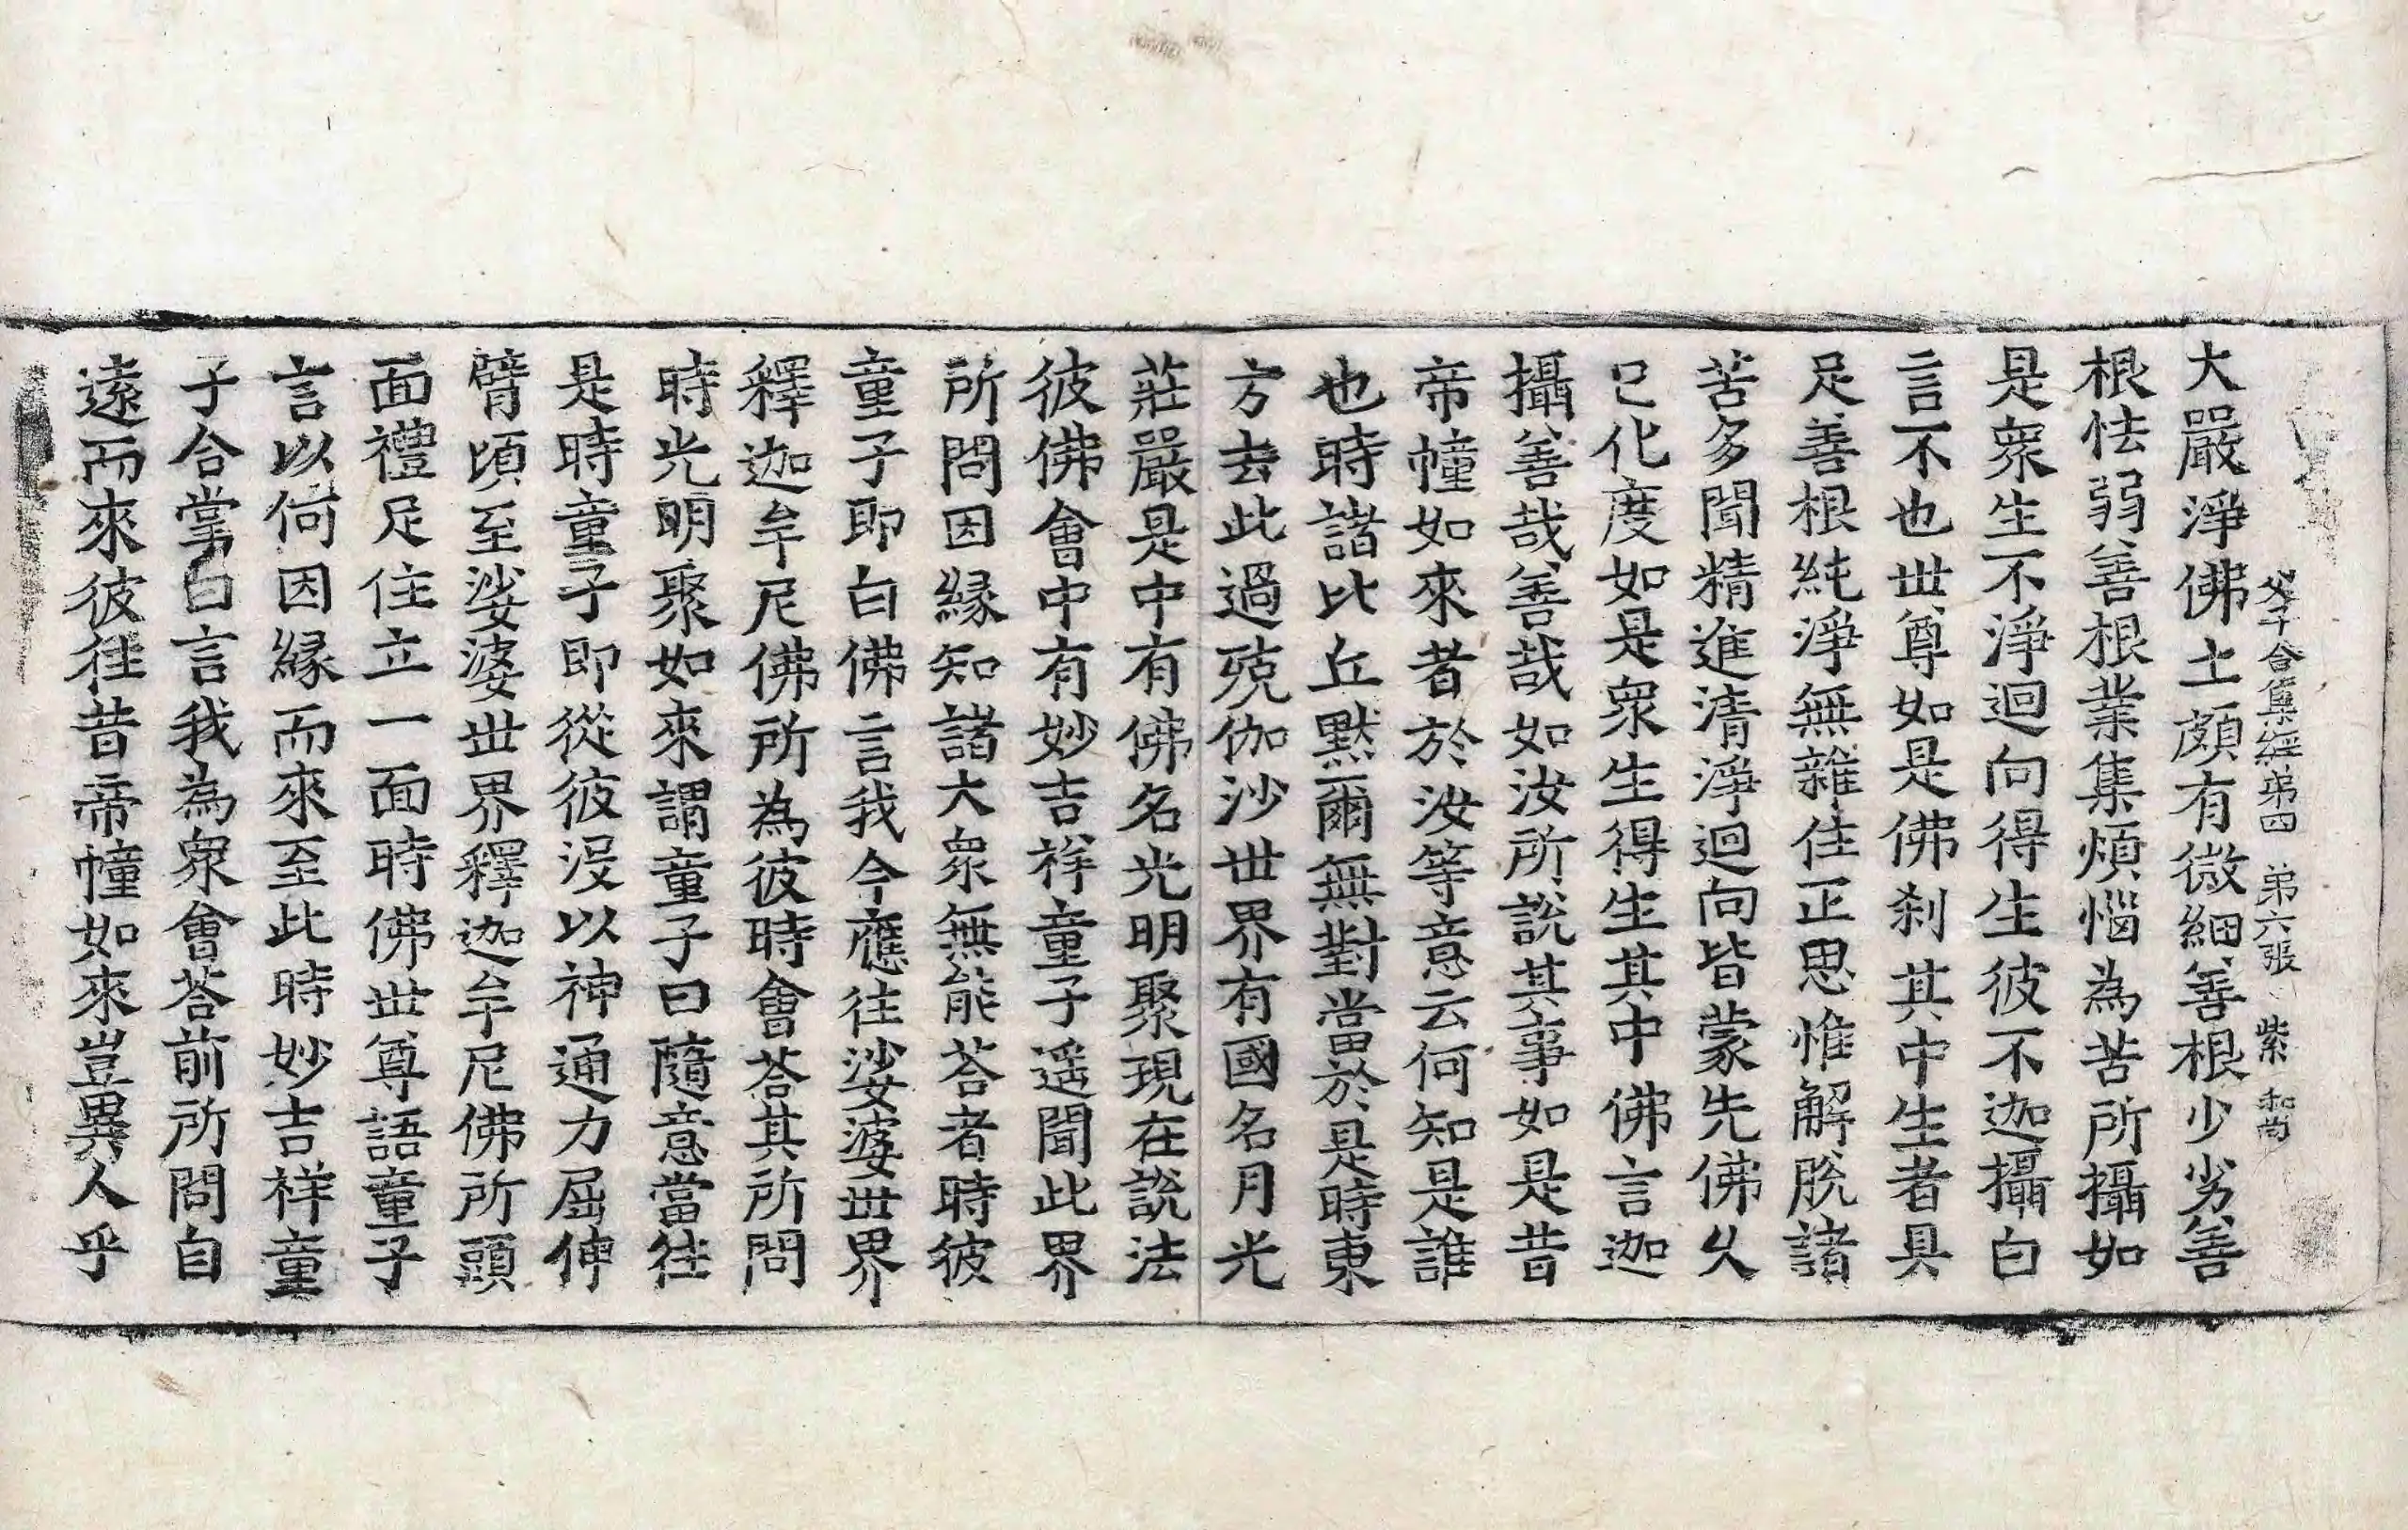 父子合集經第四 第六張 紫 和尚
大嚴淨佛土頗有微細善根少劣善
根怯弱善根業集煩惱為苦所攝如
是衆生不淨迴向得生彼不迦攝白
言不也世尊如是佛刹其中生者具
足善根純淨無雜住正思惟解脫諸
苦多聞精進清淨迴向皆蒙先佛久
已化度如是衆生得生其中佛言迦
攝善哉善哉如汝所說其事如是昔
帝幢如來者於汝等意云何知是誰
也時諸比丘默爾無對當於是時東
方去此過殑伽沙世界有國名月光
莊嚴是中有佛名光明聚現在說法
彼佛會中有妙吉祥童子遥聞此界
所問因縁知諸大衆無能荅者時彼
童子即白佛言我今應往娑婆世界
釋迦牟尼佛所為彼時會荅其所問
時光明聚如來謂童子曰隨意當往
是時童子即從彼沒以神通力屈伸
臂頃至娑婆世界釋迦牟尼佛所頭
面禮足住立一面時佛世尊語童子
言以何因縁而來至此時妙吉祥童
子合掌白言我為衆會荅前所問自
遠而來彼往昔帝幢如來豈異人乎